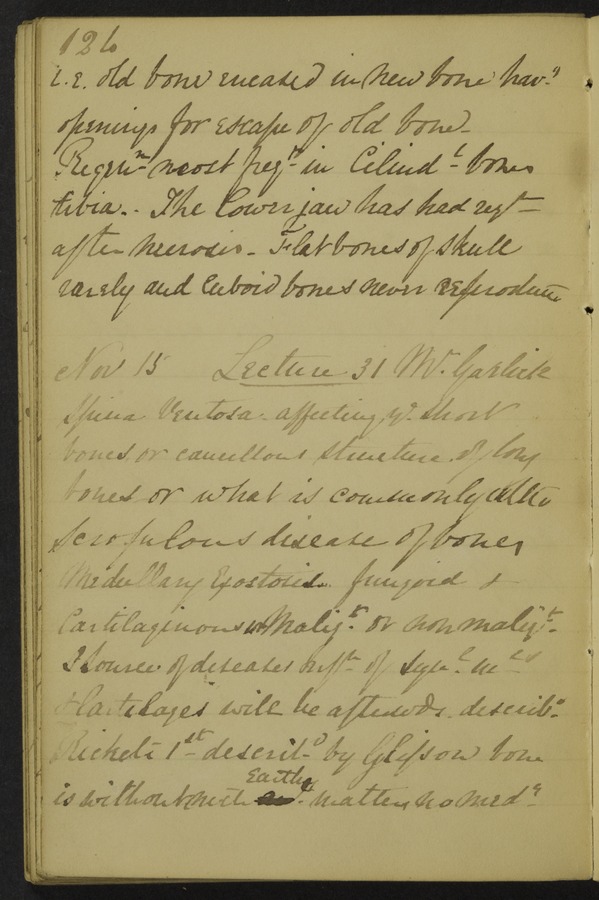 126
i.e. old bone encased in new bone hav.g
openings for escape of old bone -
Regenn most freqt in Cilindl - bones
tibia. - The lower jaw has had regt -
after necrosis - Flat bones of skull
rarely and cuboid bones never reproduce
Nov 15 Lecture 31 Mr. Garlick
Spina Ventosa - affecting ye short
bones or cancellous structure of long
bones or what is commonly
Scrofulous disease of bones
Medullary Exostosis. fungoid &
Cartilaginous or Maligt. or non maligt. -
Source of diseases of
& Cartilages will be afterwds. describd
Rickets 1st describd by Glisson bone
Earthy
is without matter, no medy